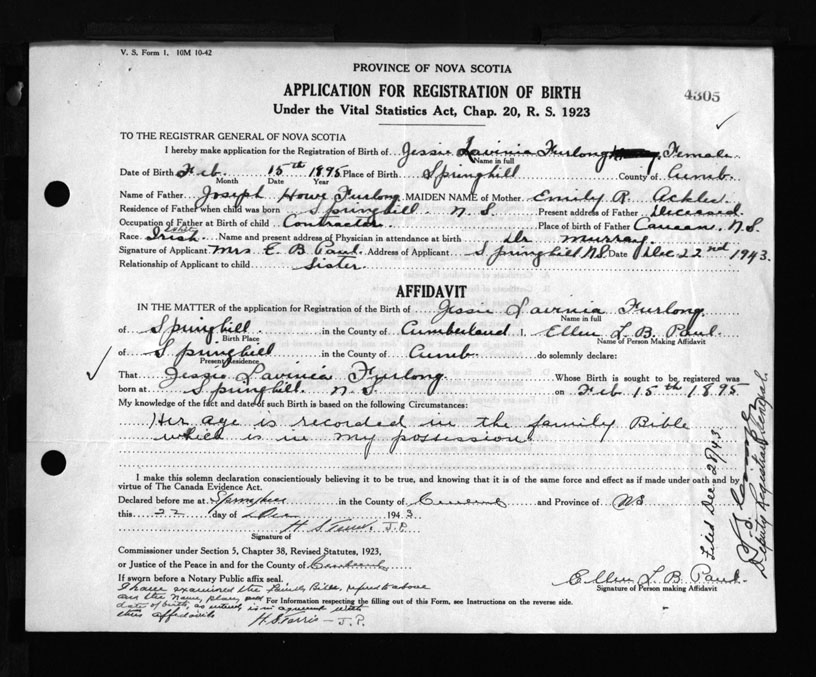 V. S. Form 1. 10M 10-42
PROVINCE OF NOVA SCOTIA
APPLICATION FOR REGISTRATION OF BIRTH
4305
Under the Vital Statistics Act, Chap. 20, R. S. 1923
TO THE REGISTRAR GENERAL OF NOVA SCOTIA
I hereby make application for the Registration of Birth of Jessie Lavinia Furlong Female
Name in full
Date of Birth Feb. 15th 1895 Place of Birth Springhill County of Cumb.
Month Date Year
Name of Father Joseph Howe Furlong MAIDEN NAME of Mother Emily R. Ackles
Residence of Father when child was born Springhill N. S. Present address of Father Deceased
Occupation of Father at Birth of child Contractor Place of birth of Father N.S.
Race Irish Name and present address of Physician in attendance at birth Dr Murray
Signature of Applicant Mrs E. B Paul Address of Applicant Springhill N.S. Date Dec 22nd 1943.
Relationship of Applicant to child Sister
AFFIDAVIT
IN THE MATTER of the application for Registration of the Birth of Jessie Lavinia Furlong
Name in full
of Springhill in the County of Cumberland I, Ellen L. B. Paul
Birth Place Name of Person Making Affidavit
of Springhill in the County of Cumb. do solemnly declare:
Present Residence
That Jessie Lavinia Furlong Whose Birth is sought to be registered was
born at Springhill N S. on Feb 15th 1895
My knowledge of the fact and date of such Birth is based on the following Circumstances:
Her age is recorded in the family Bible
which is in my possession
I make this solemn declaration conscientiously believing it to be true, and knowing that it is of the same force and effect as if made under oath and by
virtue of The Canada Evidence Act.
Declared before me at Springhill in the County of Cumb and Province of NS
this 22 day of Dec 1943
H S Terris J.P.
Signature of
Commissioner under Section 5, Chapter 38, Revised Statutes, 1923,
or Justice of the Peace in and for the County of Cumberland
If sworn before a Notary Public affix seal.
Ellen L B Paul
Signature of Person making Affidavit
I have examined the Family Bible, refered to above
and the Name, place, and
For Information respecting the filling out of this Form, see Instructions on the reverse side.
date of birth, as written is in agreement with
this affidavit
H S Terris - J.P.
Filed Dec 29/43.
Deputy Registrar General.